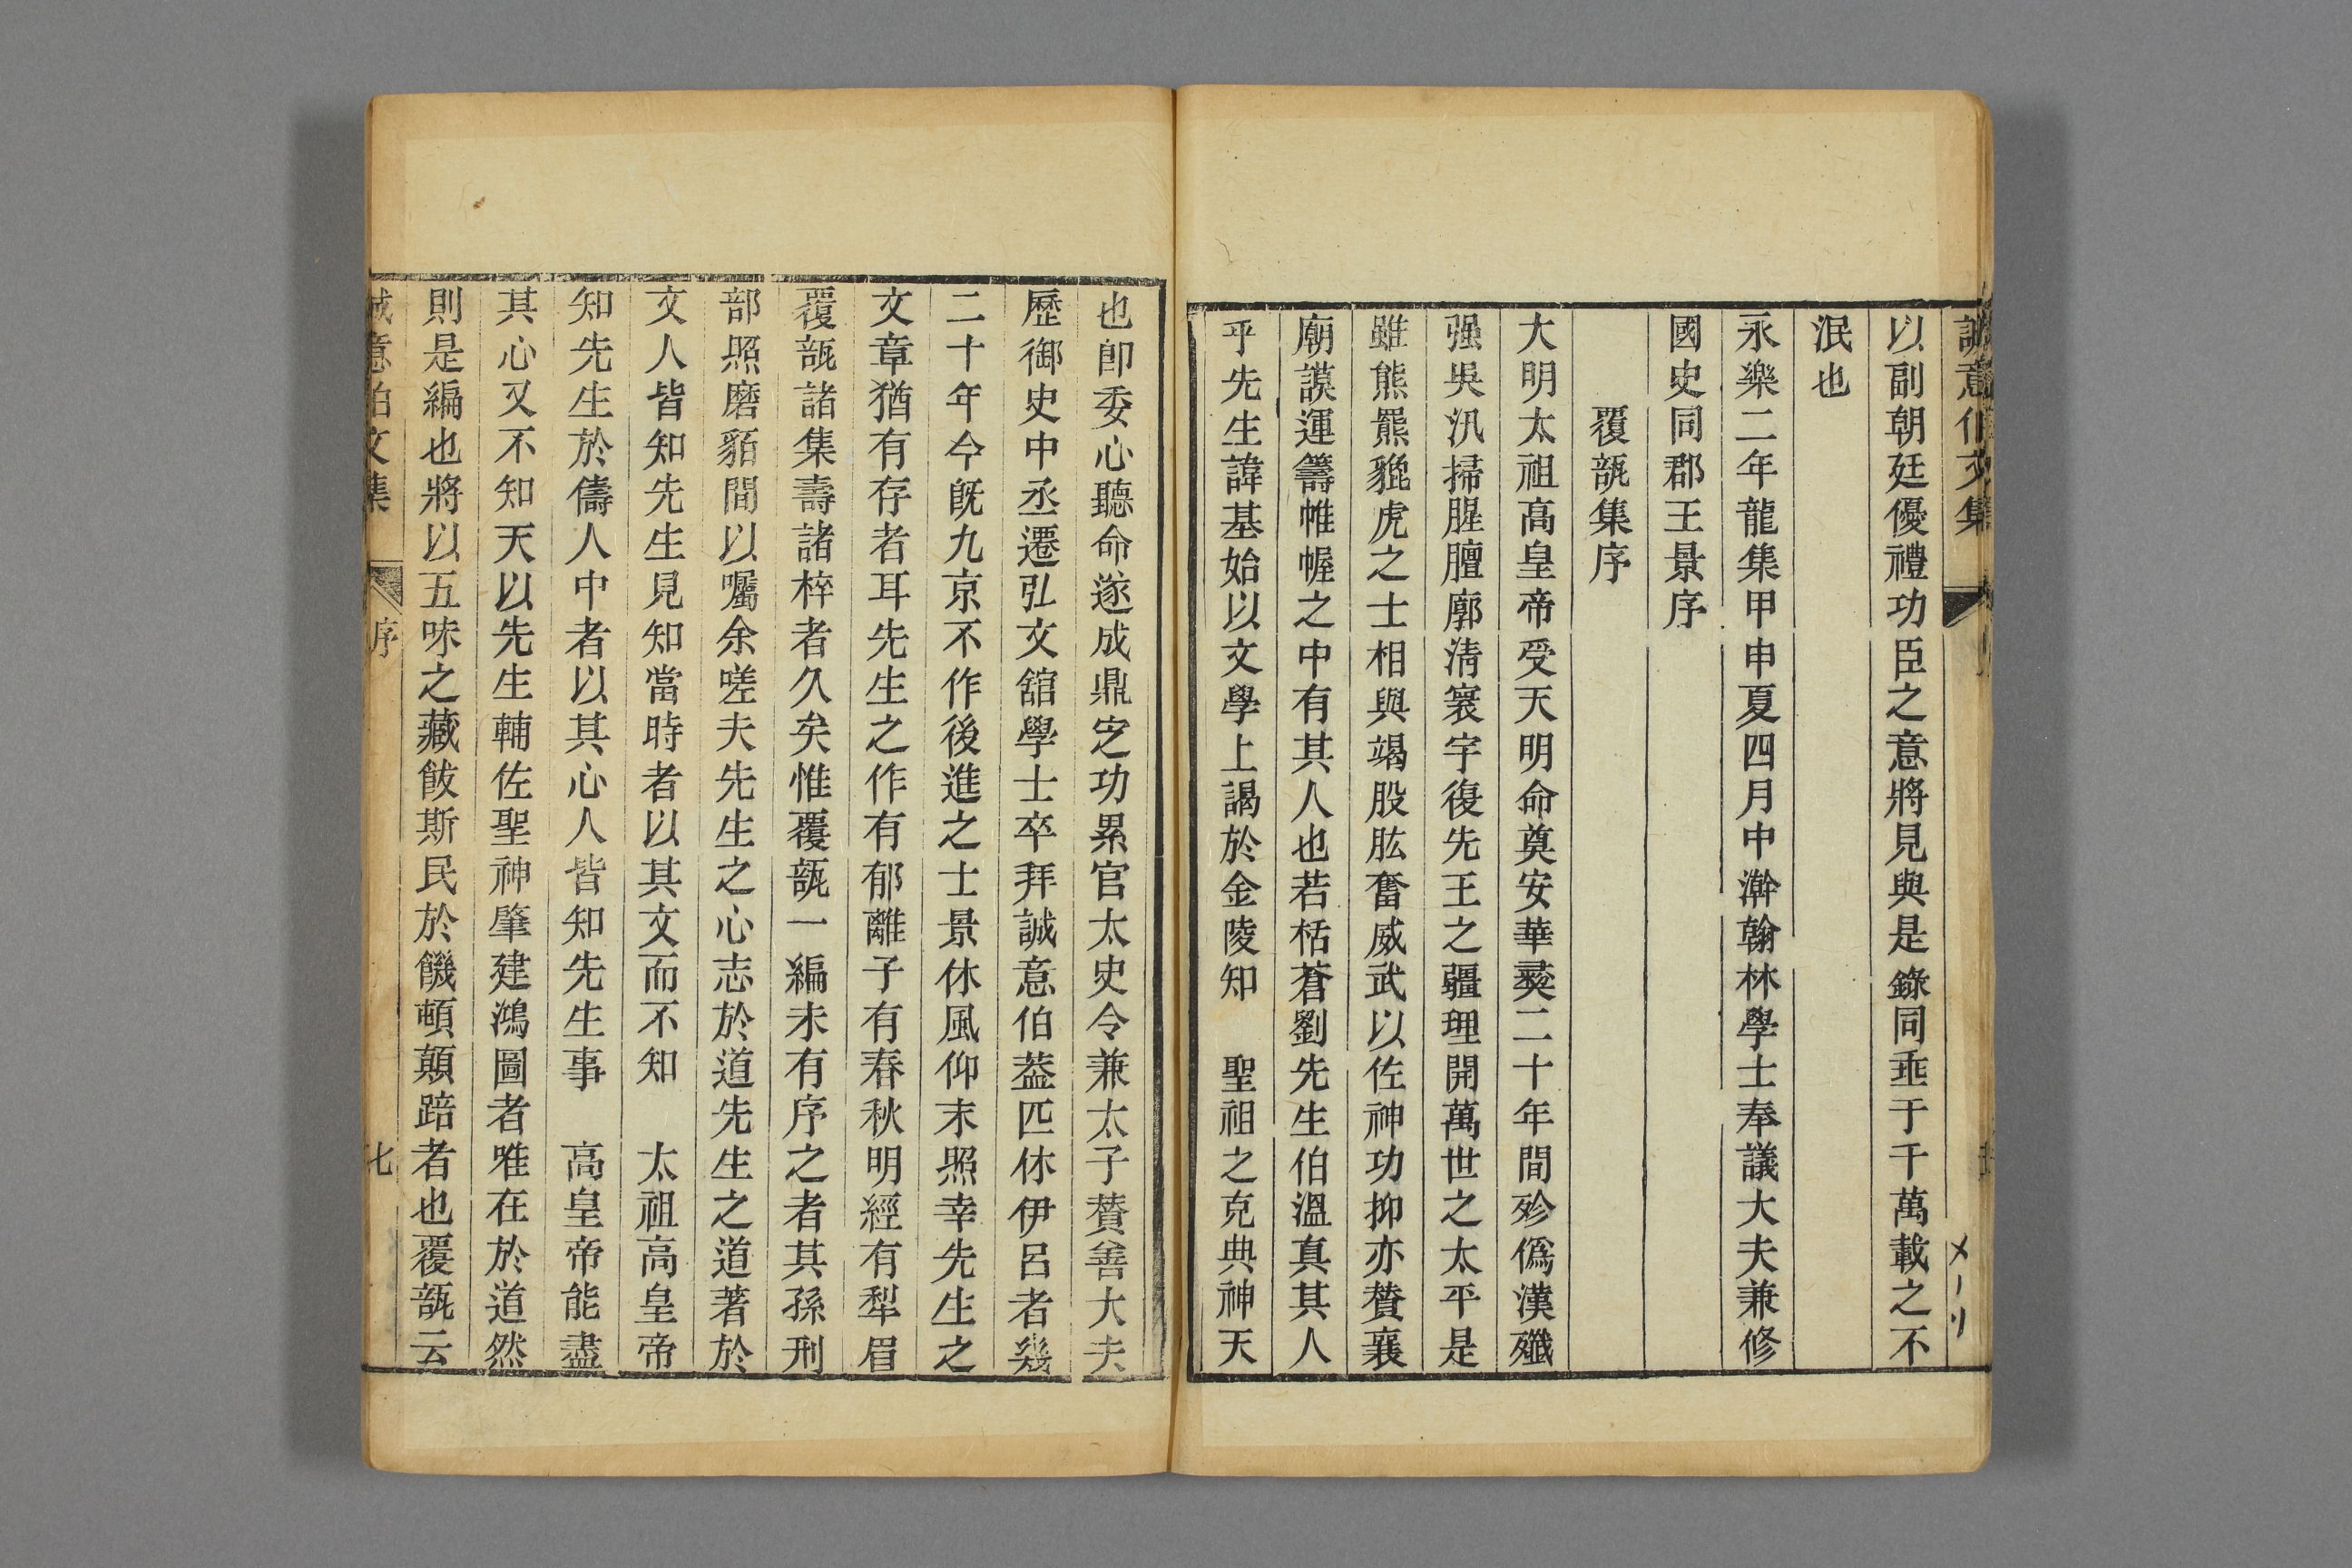 誠意伯文集
以副朝廷優禮功臣之意將見與是錄同垂于千萬載之不
泯也
永樂二年龍集甲申夏四月中澣翰林學士奉議大夫兼修
國史同郡王景序
覆瓿集序
大明太祖高皇帝受天明命奠安華彝二十年間殄僞漢殲
强吳汛掃腥膻廓淸寰宇復先王之疆理開萬世之太平是
雖熊羆貔虎之士相與竭股肱奮威武以佐神功抑亦贊襄
廟謨運籌帷幄之中有其人也若栝蒼劉先生伯溫真其人
乎先生諱基始以文學上謁於金陵知　聖祖之克典神天
也卽委心聽命遂成鼎定功累官太史令兼太子贊善大夫
歷御史中丞遷弘文館學士卒拜誠意伯葢匹休伊呂者幾
二十年今旣九京不作後進之士景休風仰末照幸先生之
文章猶有存者耳先生之作有郁離子有春秋明經有犁眉
覆瓿諸集壽諸梓者久矣惟覆瓿一編未有序之者其孫刑
部照磨貊間以囑余嗟夫先生之心志於道先生之道著於
文人皆知先生見知當時者以其文而不知　太祖高皇帝
知先生於儔人中者以其心人皆知先生事　高皇帝能盡
其心又不知天以先生輔佐聖神肇建鴻圖者唯在於道然
則是編也將以五味之藏飯斯民於饑頓顛踣者也覆瓿云
誠意伯文集　序　七